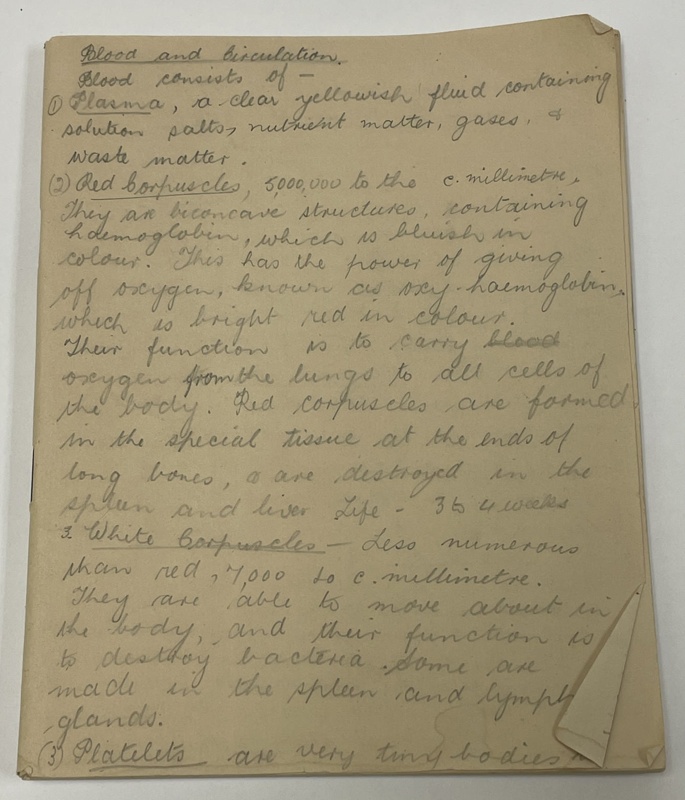 Blood and Circulation.
Blood consists of —
① Plasma, a clear yellowish fluid containing
solution salts, nutrient matter, gases, &
waste matter.
(2) Red Corpuscles, 5,000,000 to the c. millimetre.
They are biconcave structures, containing
haemoglobin, which is bluish in
colour. This has the power of giving
off oxygen, known as oxy-haemoglobin,
which is bright red in colour.
Their function is to carry blood
oxygen from the lungs to all cells of
the body. Red corpuscles are formed
in the special tissue at the ends of
long bones, & are destroyed in the
spleen and liver Life - 3 to 4 weeks
3. White Corpuscles — Less numerous
than red, 7,000 to c. millimetre.
They are able to move about in
the body, and their function is
to destroy bacteria. Some are
made in the spleen and lymph
glands.
(3) Platelets are very tiny bodies